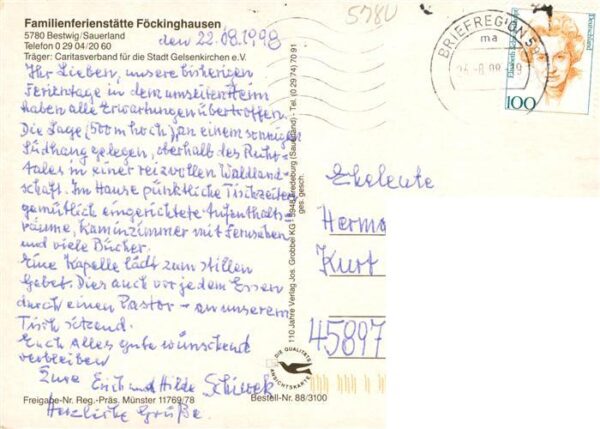 Familienferienstätte Föckinghausen
5780 Bestwig/Sauerland
Telefon 0 29 04/20 60
Träger: Caritasverband für die Stadt Gelsenkirchen e.V.
den 22.08.1998
Ihr Lieben, unsere bisherigen
Ferientage in dem umseiten Heim
haben alle Erwartungen übertroffen.
Die Lage (500 m hoch) an einem sonnigen
Südhang gelegen, oberhalb des Ruhr-
tales in einer reizvollen Waldland-
schaft. Im Hause pünktliche Tischzeiten
gemütlich eingerichtete Aufenthalts-
räume, Kaminzimmer mit Fernsehen
und viele Bücher.
Eine Kapelle lädt zum stillen
Gebet. Dies auch vor jedem Essen
durch einen Pastor - an unserem
Tisch sitzend.
Euch Alles gute wünschend
verbleiben
Eure Erich und Hilde Schiwek
Herzliche Grüße.
Freigabe-Nr. Reg.-Präs. Münster 11769/78
Bestell-Nr. 88/3100
110 Jahre Verlag Jos. Grobbel KG · 5948 Fredeburg (Sauerland) - Tel. (0 29 74) 70 91
ges. gesch.
DIE QUALITÄTS
ANSICHTSKARTE
5780
BRIEFREGION 59
ma
Deutschland
100
Eheleute
Herma
Kurt
45897